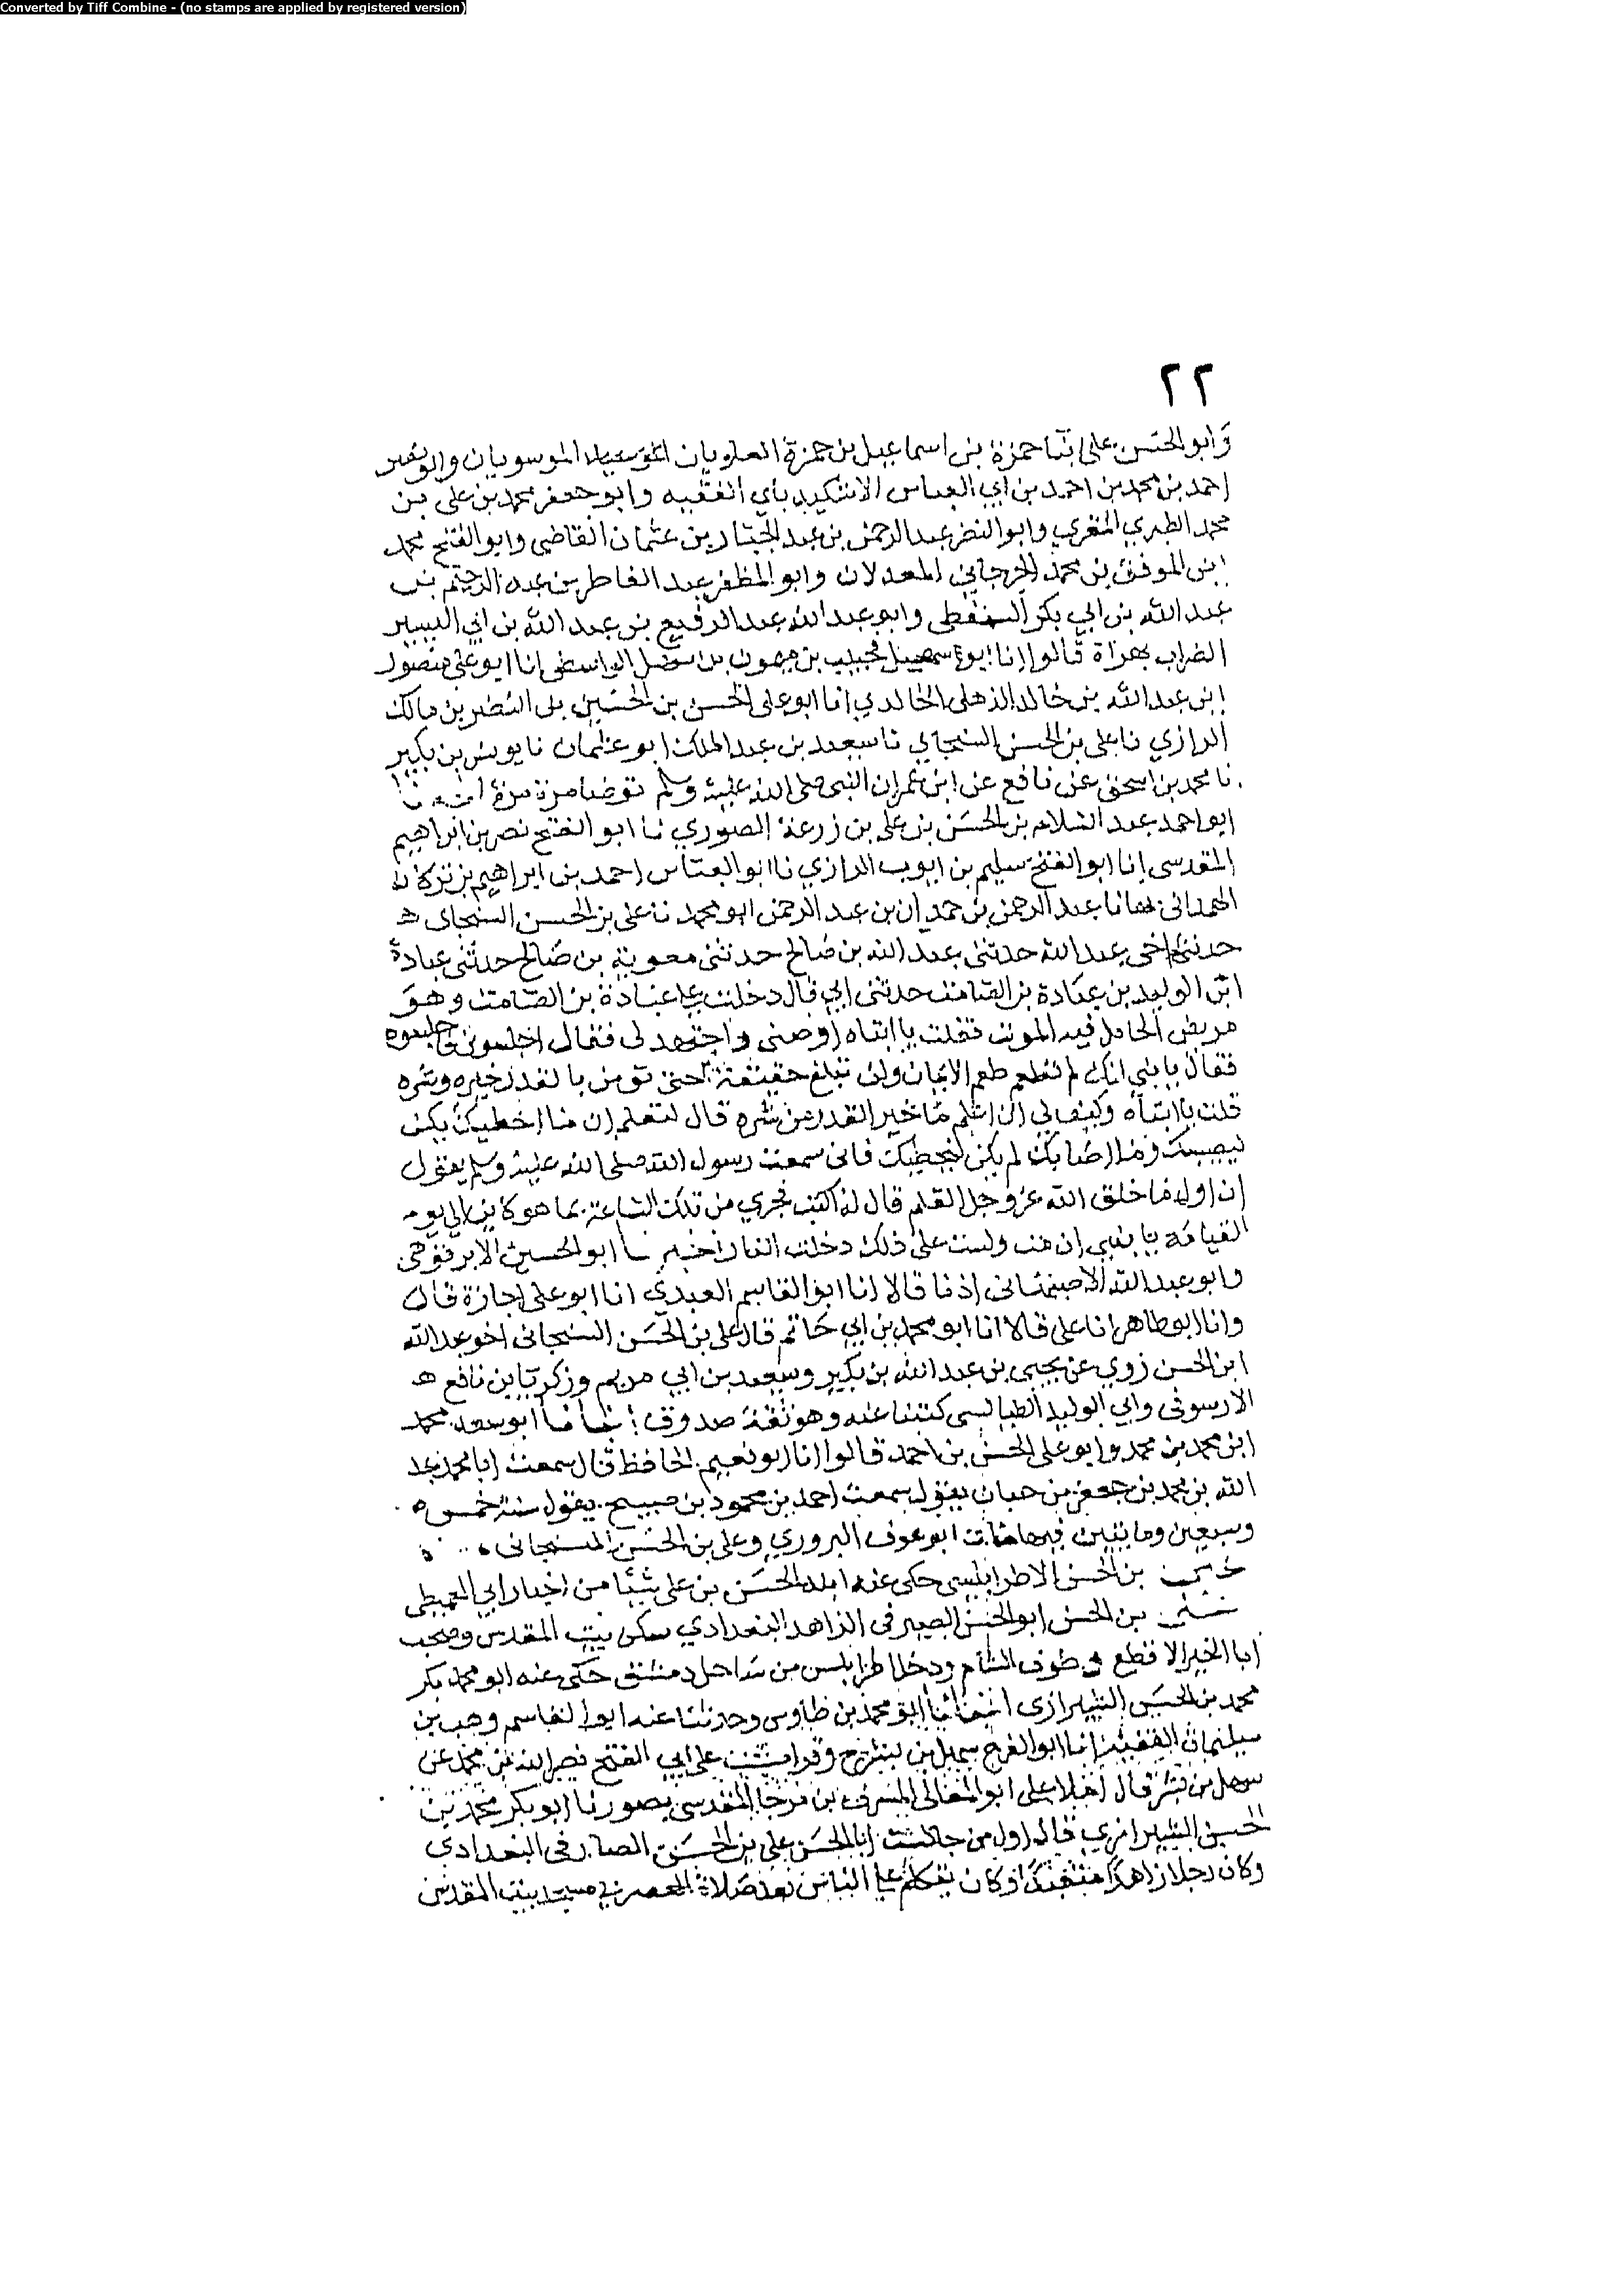 Converted by Tiff Combine - (no stamps are applied by registered version)
٢٢
وابو الحسن على ابنا حمزة بن اسماعيل بن حمزة العلويان الموسويان وابو نصر
احمد بن محمد بن احمد بن ابي العباس الفقيه وابو جعفر محمد بن على بن
محمد الطبري المقري وابو النضر عبد الرحمن بن عبد الجبار بن عثمان القاضي وابو الفتح محمد
ابن الموفق بن محمد الجرجاني المعدلان وابو المظفر عبد الفاطر بن عبد الرحيم بن
عبد الله بن ابي بكر السقطى وابو عبد الله عبد الرفيع بن عبد الله بن ابي اليسير
الضراب بهراة قالوا انا ابو سهيل نجيب بن ميمون بن سهل الواسطى انا ابو على منصور
ابن عبد الله بن خالد الذهلى الخالدي انا ابو على الحسن بن الحسين بن النضر بن مالك
الرازي نا على بن الحسن السنجاني نا سعيد بن عبد الملك ابو عثمان نا يونس بن بكير
نا محمد بن اسحق عن نافع عن ابن عمر ان النبى صلى الله عليه وسلم توضا مرة مرة
ابو احمد عبد السلام بن الحسن بن على بن زرعة الصوري نا ابو الفتح نصر بن ابراهيم
المقدسى انا ابو الفتح سليم بن ايوب الرازي نا ابو العباس احمد بن ابراهيم بن تركان
الهمدانى بها نا عبد الرحمن بن حمدان بن عبد الرحمن ابو محمد نا على بن الحسن السنجانى
حدثني اخى عبد الله حدثنى عبد الله بن صالح حدثنى معوية بن صالح حدثنى عبادة
ابن الوليد بن عبادة بن الصامت حدثنى ابي قال دخلت على عبادة بن الصامت وهو
مريض الحامل فيه الموت فقلت يا ابتاه اوصنى واجتهد لى فقال اجلسونى فاجلسوه
فقال يا بني انك لم تطعم طعم الايمان ولن تبلغ حقيقة حتى تؤمن بالقدر خيره وشره
قلت يا ابتاه وكيف لي ان اعلم ما خير القدر من شره قال لتعلم ان ما اخطيك لم يكن
ليصيبك وما اصابك لم يكن ليخطيك فانى سمعت رسول الله صلى الله عليه وسلم يقول
ان اول ما خلق الله عز وجل القلم قال له اكتب فجري من تلك الساعة بما هو كاين الى يوم
القيامة يا بني ان مت ولست على ذلك دخلت النار اخبرنا ابو الحسين الابرقوهى
وابو عبد الله الاصبهانى اذنا قالا انا ابو القاسم العبدي انا ابو على اجازة قال
وانا ابو طاهر انا على قالا انا ابو محمد بن ابي حاتم قال على بن الحسن السنجانى اخو عبد الله
ابن الحسن روي عن يحيى بن عبد الله بن بكير وسعيد بن ابي مريم وزكريا بن نافع
الارسوفى وابي الوليد الطيالسى كتبنا عنه وهو ثقة صدوق انبانا ابو سعد محمد
ابن محمد بن محمد وابو على الحسن بن احمد قالوا انا ابو نعيم الحافظ قال سمعت ابا محمد عبد
الله بن محمد بن جعفر بن حيان يقول سمعت احمد بن محمود بن صبيح يقول سنة خمس
وسبعين ومايتين فيها مات ابو عوف البزوري وعلى بن الحسن السنجانى
بن الحسن الاطرابلسى حكى عنه ابنه الحسن بن على شيئا من اخبار ابي العميطر
بن الحسن ابو الحسن الصيرفى الزاهد البغدادي سكن بيت المقدس وصحب
ابا الخير الاقطع وطوف الشام ودخل اطرابلس من ساحل دمشق حكى عنه ابو محمد بكر
محمد بن الحسن الشيرازى انبانا ابو محمد بن طاوس وحدثنا عنه ابو القاسم وهب بن
سليمان الفقيه انا ابو الفرج سهل بن بشر ح وقرات على ابي الفتح نصر الله بن محمد عن
سهل بن بشر قال املا على ابو المعالى المشرف بن مرجا المقدسى بصور نا ابو بكر محمد بن
الحسن الشيرازي قال اول من جالست ابا الحسن على بن الحسن الصارفى البغدادي
وكان رجلا زاهدا متعبدا وكان يتكلم على الناس بعد صلاة العصر في مسجد بيت المقدس